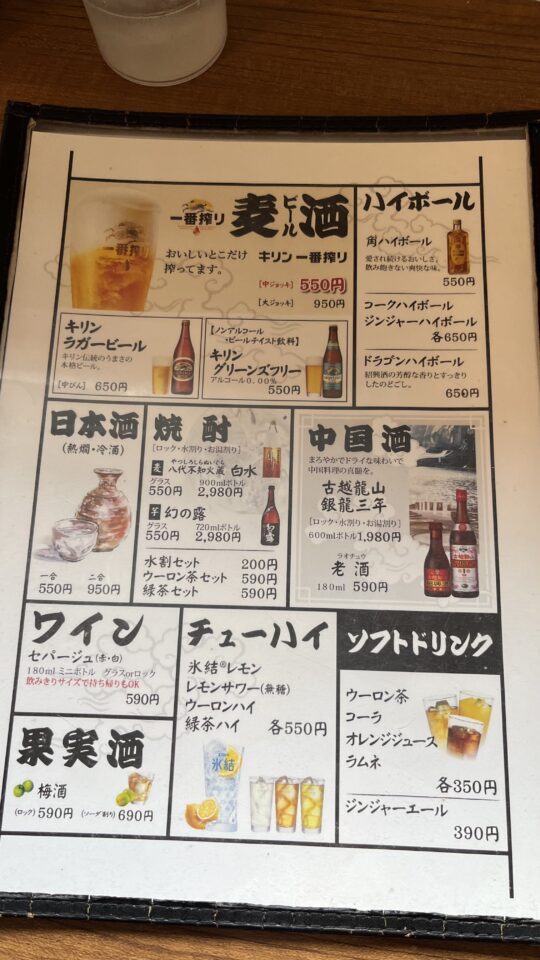 一番搾り
麦酒
ビール
おいしいとこだけ
搾ってます。
キリン一番搾り
[中ジョッキ] 550円
[大ジョッキ] 950円
一番搾り
キリン
ラガービール
キリン伝統のうまさの
本格ビール。
[中びん] 650円
[ノンアルコール
・ビールテイスト飲料]
キリン
グリーンズフリー
アルコール0.00%
550円
ハイボール
角ハイボール
愛され続けるおいしさ。
飲み飽きない爽快な味。
550円
コークハイボール
ジンジャーハイボール
各650円
ドラゴンハイボール
紹興酒の芳醇な香りとすっきり
したのどごし。
650円
日本酒
(熱燗・冷酒)
一合 二合
550円 950円
焼酎
[ロック・水割り・お湯割り]
やつしろしらぬいぐら
麦 八代不知火蔵 白水
グラス 900mlボトル
550円 2,980円
芋 幻の露
グラス 720mlボトル
550円 2,980円
水割セット 200円
ウーロン茶セット 590円
緑茶セット 590円
中国酒
まろやかでドライな味わいで
中国料理の真髄を。
古越龍山
銀龍三年
[ロック・水割り・お湯割り]
600mlボトル 1,980円
ラオチュウ
老酒
180ml 590円
ワイン
セパージュ(赤・白)
180mlミニボトル グラスorロック
飲みきりサイズで持ち帰りもOK
590円
果実酒
梅酒
(ロック) 590円 (ソーダ割り) 690円
チューハイ
氷結®レモン
レモンサワー(無糖)
ウーロンハイ
緑茶ハイ 各550円
氷結
ソフトドリンク
ウーロン茶
コーラ
オレンジジュース
ラムネ
各350円
ジンジャーエール
390円